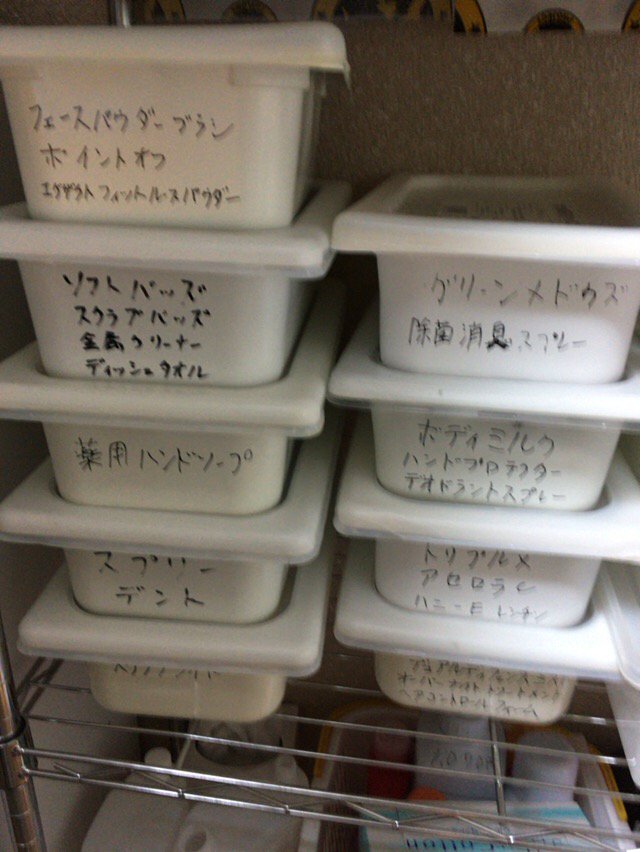 フェースパウダーブラシ
ポイントオフ
エグザクトフィットルースパウダー
ソフトパッズ
スクラブパッズ
金属クリーナー
ディッシュタオル
薬用ハンドソープ
スプリー
デント
グリーンメドウズ
除菌消臭スプレー
ボディミルク
ハンドプロテクター
デオドラントスプレー
トリプルX
アセロラC
ハニーE レシチン
オーバーナイトトリートメント
ヘアコントロールフォーム